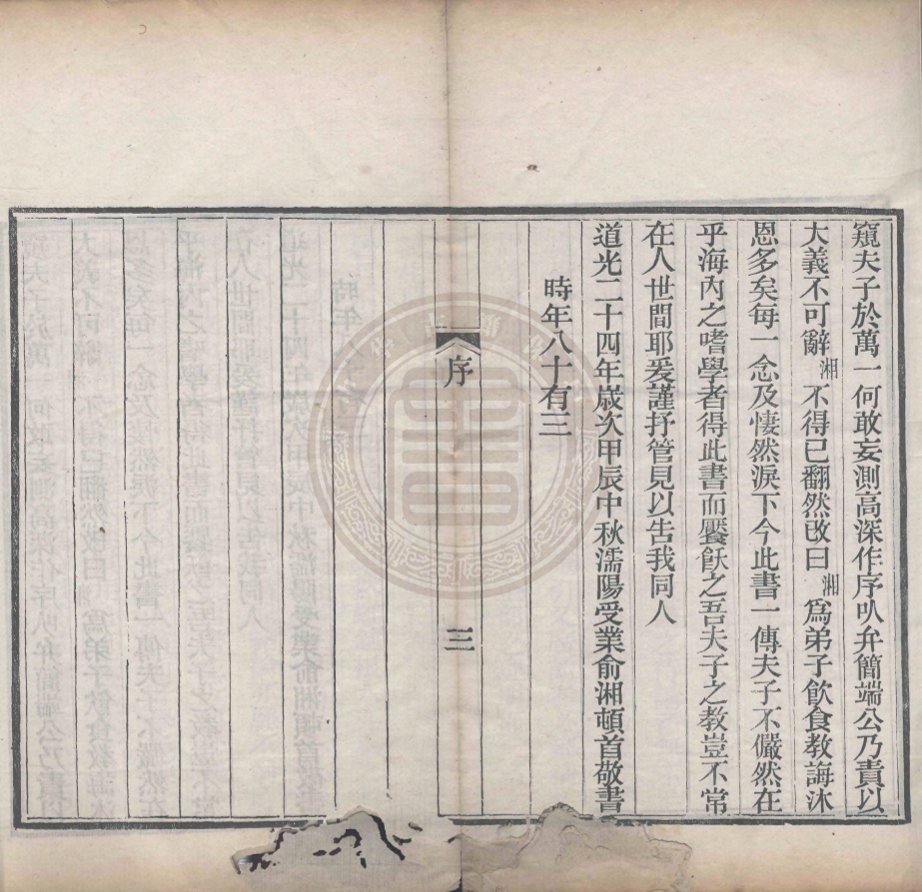 窺夫子於萬一何敢妄測高深作序以弁簡端公乃責以
大義不可辭湘不得已翻然改曰湘爲弟子飲食教誨沐
恩多矣每一念及悽然淚下今此書一傳夫子不儼然在
乎海內之嗜學者得此書而饜飫之吾夫子之教豈不常
在人世間耶爰謹抒管見以告我同人
道光二十四年歲次甲辰中秋濡陽受業俞湘頓首敬書
時年八十有三
序
三